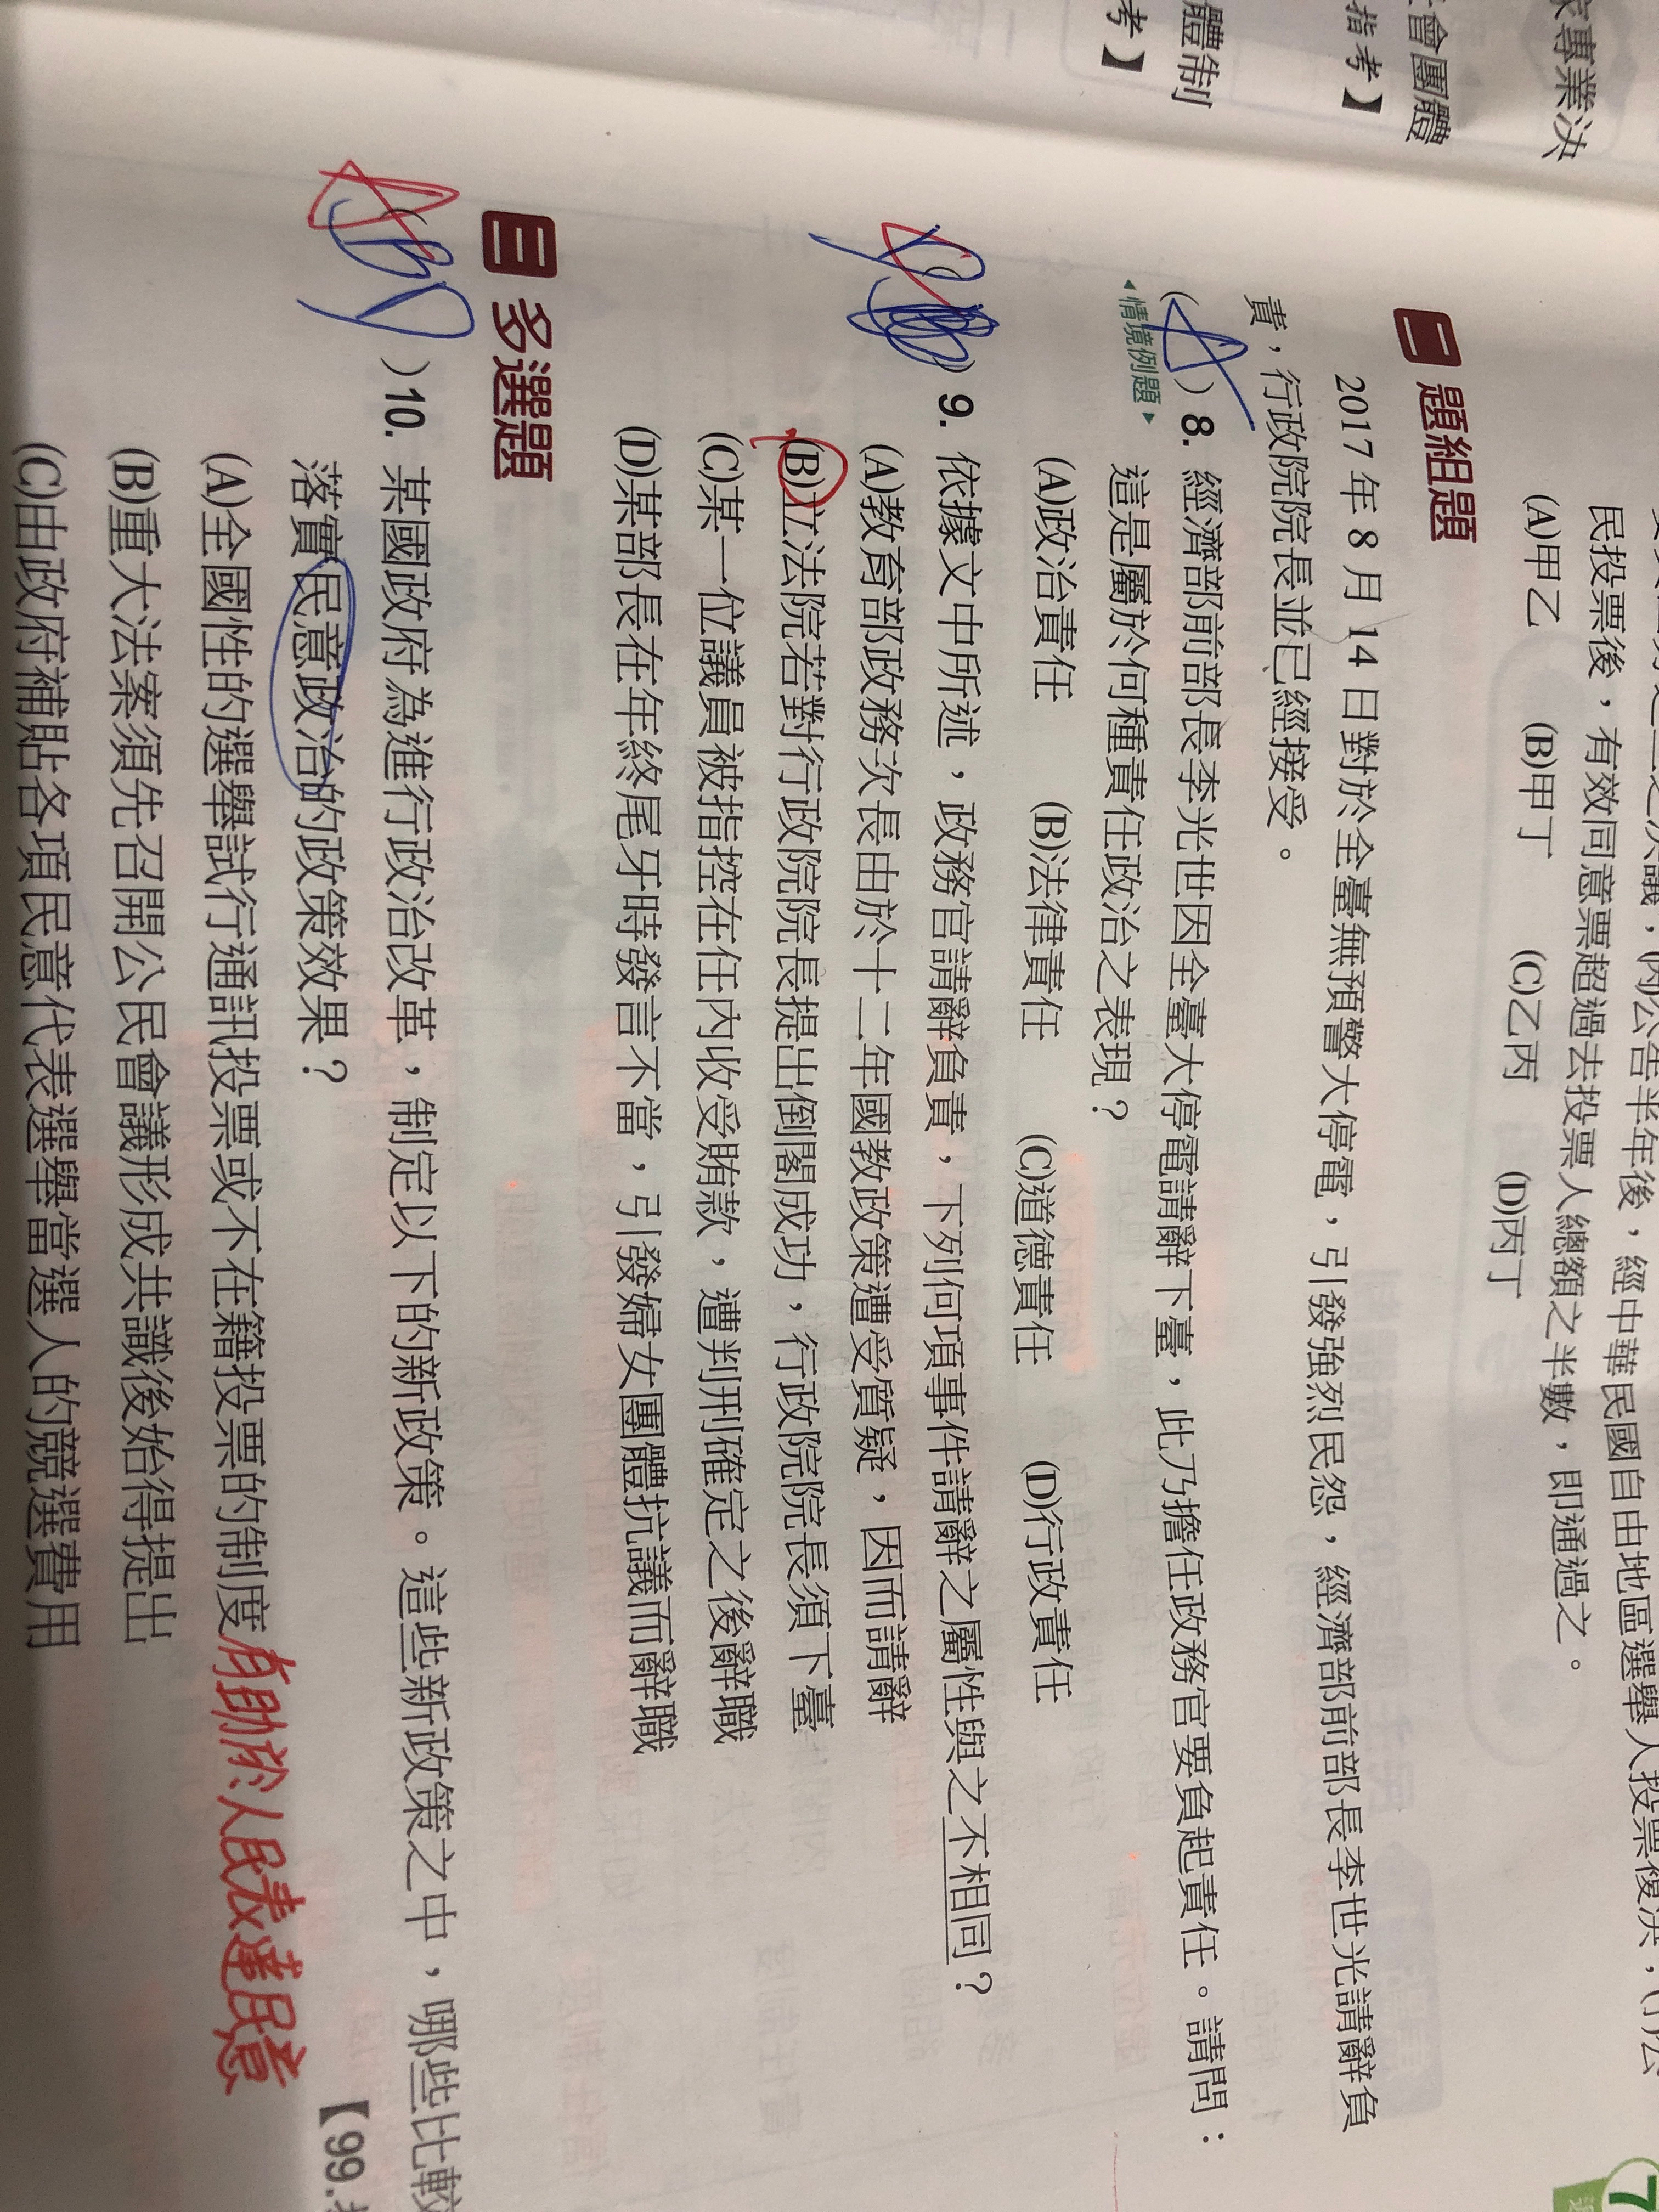 家專業決
會團體
指考】
體制
考】
民投票後，有效同意票超過去投票人總額之半數，即通過之。
(A)甲乙 (B)甲丁 (C)乙丙 (D)丙丁
二 題組題
2017 年 8 月 14 日對於全臺無預警大停電，引發強烈民怨，經濟部前部長李世光請辭負
責，行政院院長並已經接受。
(A) 8. 經濟部前部長李光世因全臺大停電請辭下臺，此乃擔任政務官要負起責任。請問：
情境例題
這是屬於何種責任政治之表現？
(A)政治責任 (B)法律責任 (C)道德責任 (D)行政責任
) 9. 依據文中所述，政務官請辭負責，下列何項事件請辭之屬性與之不相同？
(A)教育部政務次長由於十二年國教政策遭受質疑，因而請辭
(B)立法院若對行政院院長提出倒閣成功，行政院院長須下臺
(C)某一位議員被指控在任內收受賄款，遭判刑確定之後辭職
(D)某部長在年終尾牙時發言不當，引發婦女團體抗議而辭職
三 多選題
) 10. 某國政府為進行政治改革，制定以下的新政策。這些新政策之中，哪些比較
落實民意政治的政策效果？
【99.
(A)全國性的選舉試行通訊投票或不在籍投票的制度 有助於人民表達民意
(B)重大法案須先召開公民會議形成共識後始得提出
(C)由政府補貼各項民意代表選舉當選人的競選費用
7